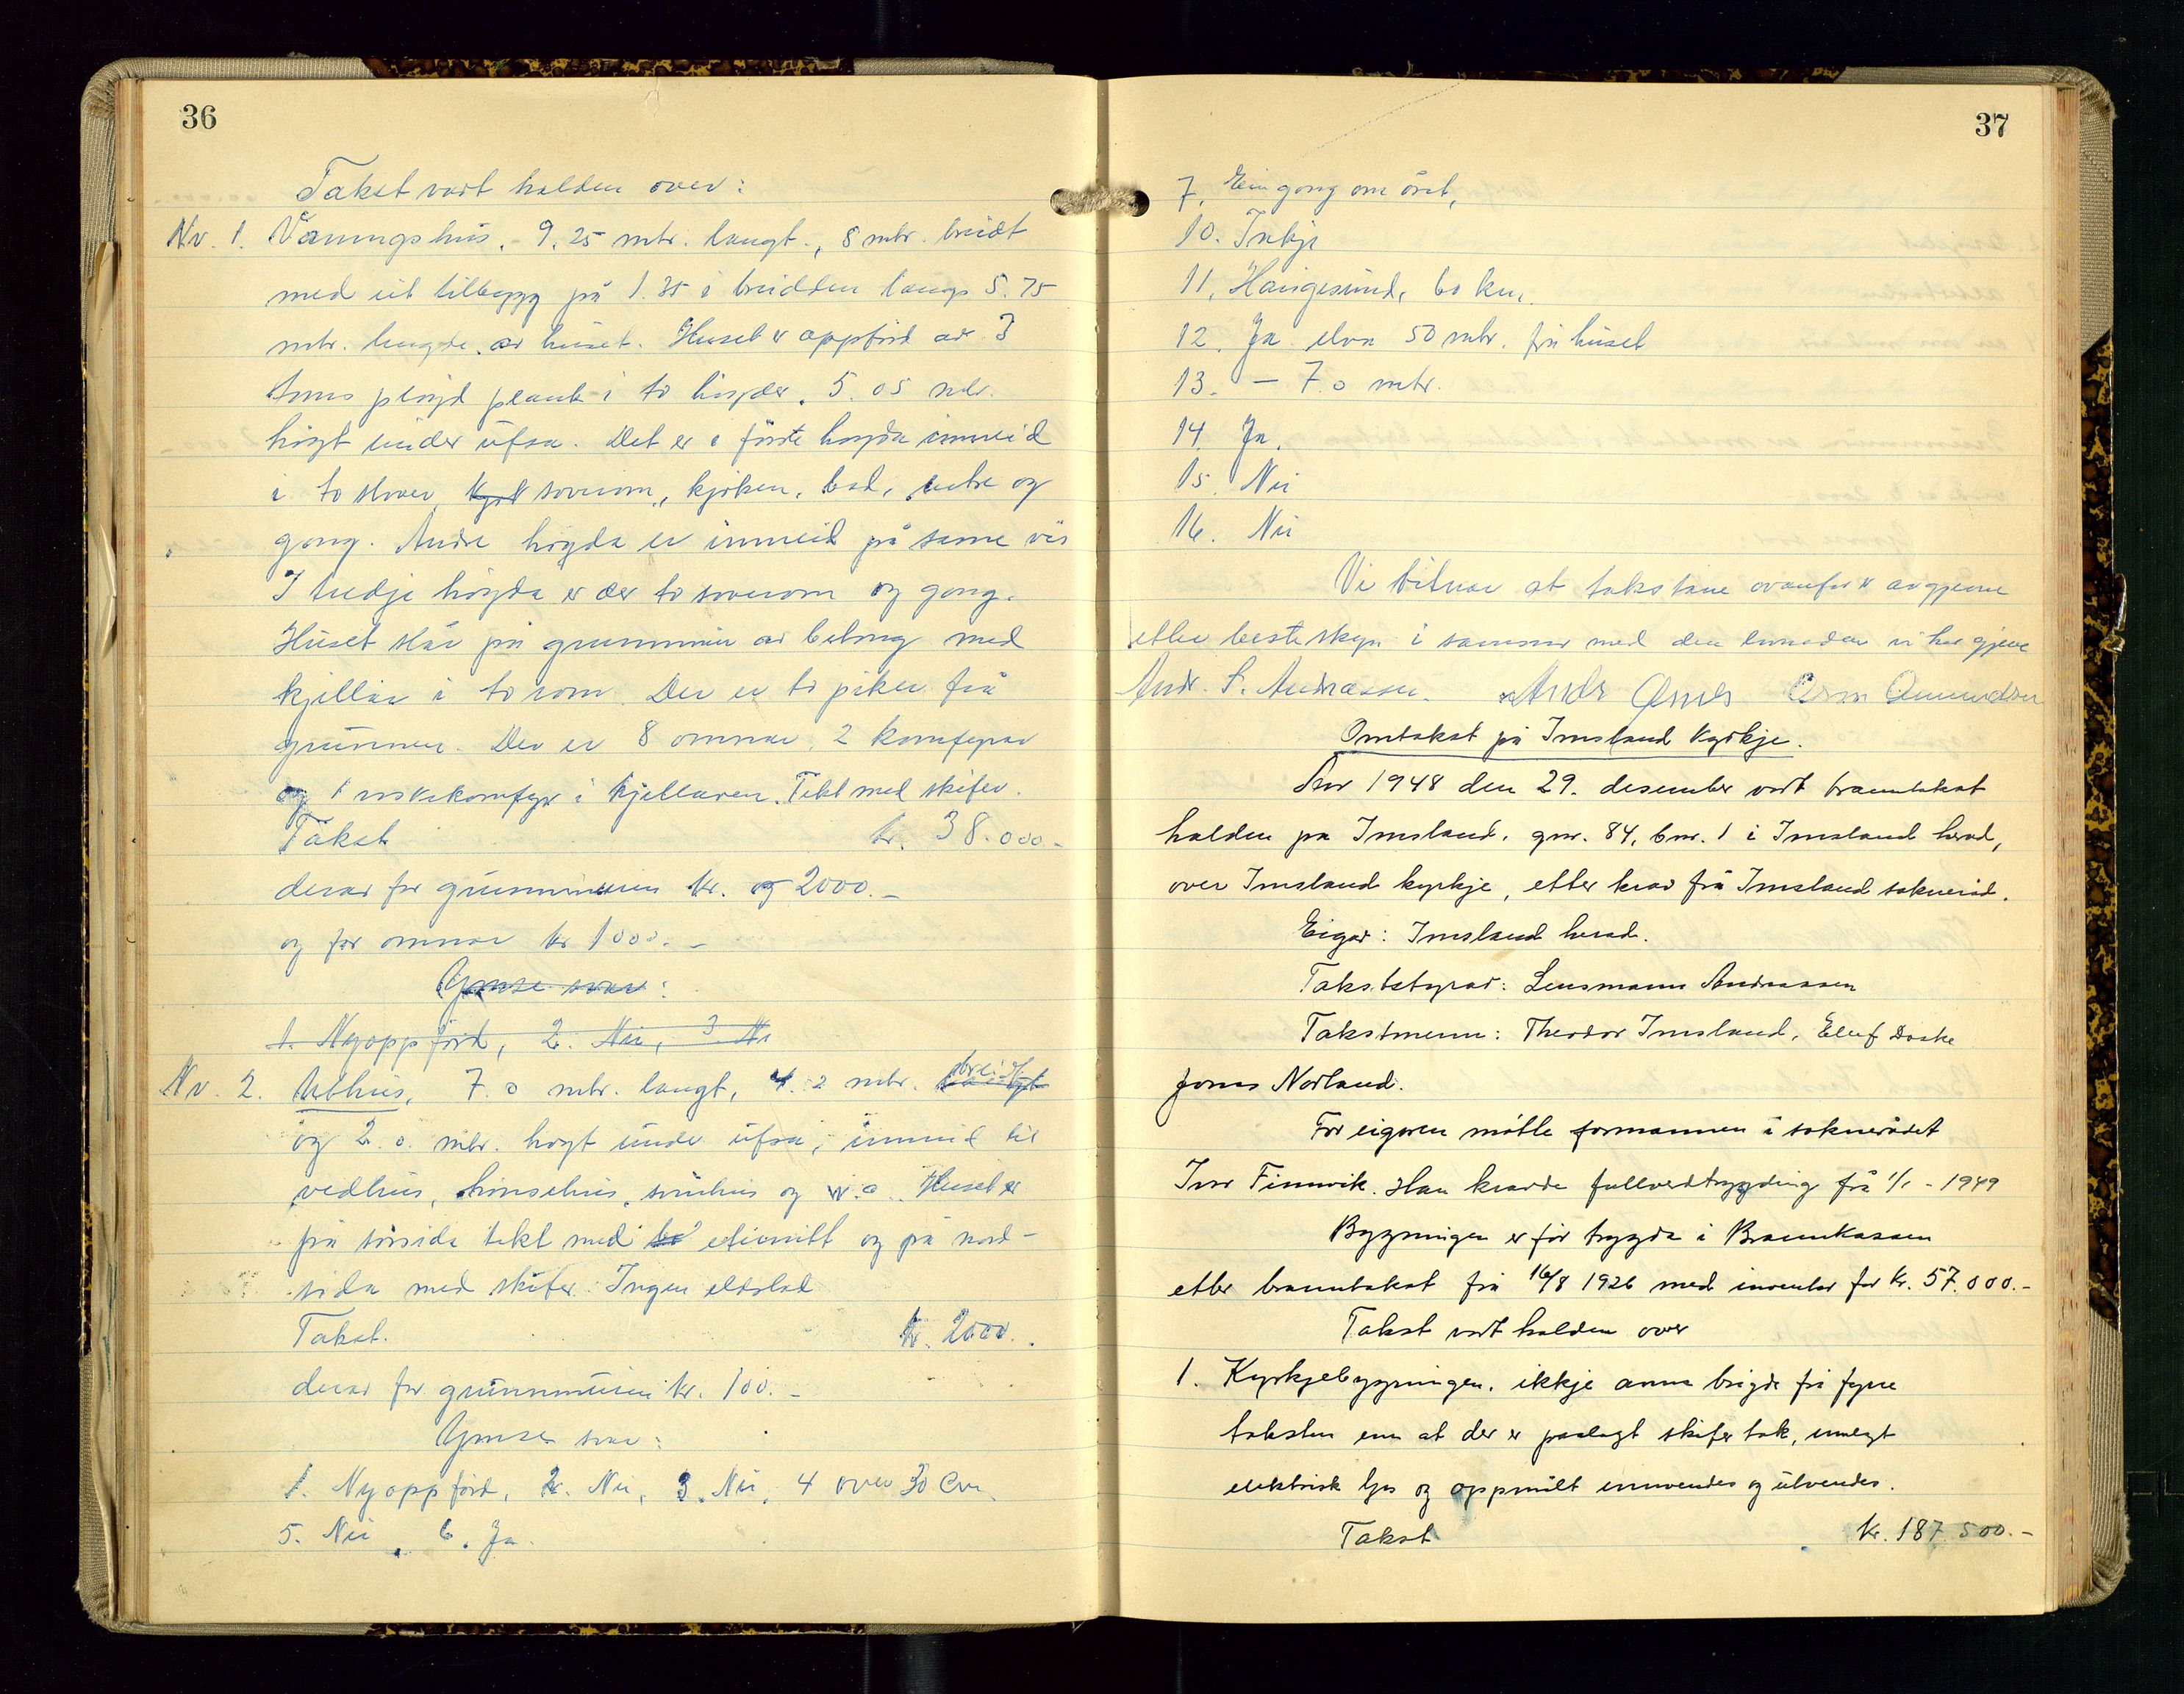 36
Takst vart halden over:
Nr. 1. Våningshus, 9,25 mtr. langt., 8 mtr. breidt
med eit tilbygg på 1.35 i breidden langs 5.75
mtr. lengde av huset. Huset er oppförd av 3
toms plöyd plank i to högder. 5.05 mtr.
högt under ufsa. Det er i förste högda innreid
i to stover, soverom, kjöken, bad, entre og
gong. Andre högda er innreid på same vis
I tredje högda er der to soverom og gong.
Huset står på grunnmur av betong med
kjellar i to rom. Der er to piper frå
grunnen. Der er 8 omnar, 2 komfyrar
og 1 vaskekomfyr i kjellaren. Tekt med skifer.
Takst kr. 38.000.-
derav for grunnmuren kr. 2000.-
og for omnar kr 1000.-
Ymse svar:
1. Nyoppförd, 2. Nei, 3 Ne
Nr. 2. Uthus, 7.0 mtr. langt, 4.2 mtr. breidt
og 2.0. mtr. högt under ufsa, innreid til
vedhus, hönsehus, svinhus og w.c. Huset er
på sörsida tekt med eternitt og på nord-
sida med skifer. Ingen eldstad
Takst. kr. 2000.
derav for grunnmuren kr. 100.-
Ymse svar:
1. Nyoppförd, 2. Nei, 3. Nei, 4 over 30 cm.
5. Nei, 6. Ja
37
7. Ein gong om året,
10. Inkje
11. Haugesund, 60 km.
12. Ja elva 50 mtr. frå huset
13. - 7.0 mtr.
14. Ja.
15. Nei
16. Nei
Vi vitnar at takstane ovanfor er avgjevne
etter beste skyn i samsvar med den lovnaden vi har gjeve
Andr. S. Andreassen. Andr Amds Orm Amundsen
Omtakst på Imsland kyrkje.
År 1948 den 29. desember vart branntakst
halden på Imsland, gnr. 84, bnr. 1 i Imsland herad,
over Imsland kyrkje, etter krav frå Imsland sokneråd.
Eigar: Imsland herad.
Takststyrar: Lensmann Andreassen
Takstmenn: Theodor Imsland, Eluf Doske
Jonas Norland.
For eigaren møtte formannen i soknerådet
Ivar Finnvik. Han kravde fullverdtrygding frå 1/1 - 1949
Bygningen er för trygda i Brannkassen
etter branntakst frå 16/8 1926 med inventar for kr. 57.000.-
Takst vart halden over
1. Kyrkjebygningen, ikkje anna brigde frå fyrre
taksten enn at der er paalagt skifertak, innlagt
elektrisk ljos og oppmålt innvendes og utvendes.
Takst kr. 187 500.-